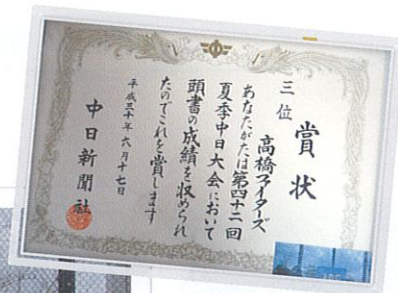 賞状
三位
高橋ファイターズ
あなたがたは第四十二回
夏季中日大会において
頭書の成績を收められ
たのでこれを賞します
平成三十年六月十七日
中日新聞社